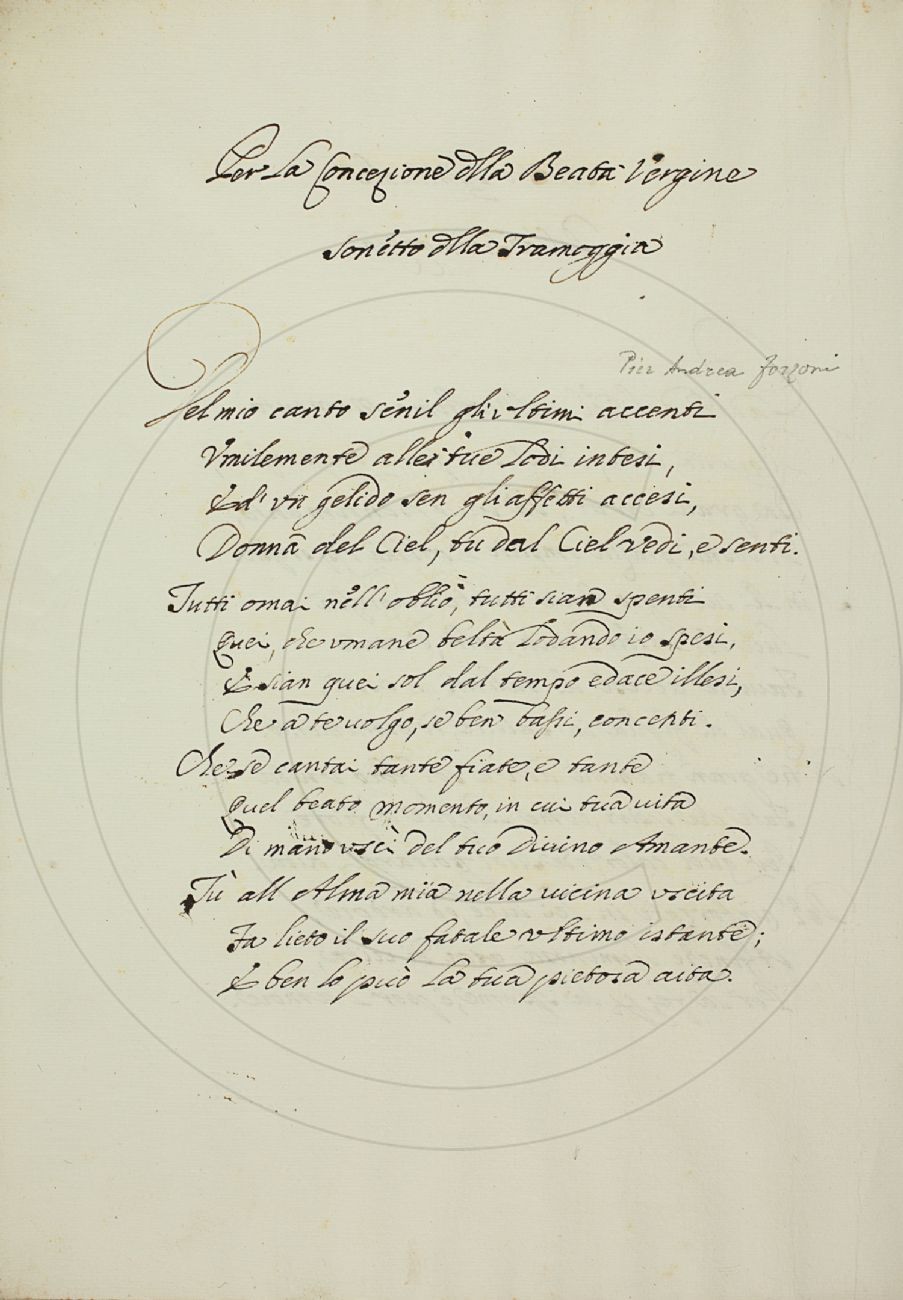 Per La Concezione dlla Beata Vergine
sonetto dlla Tramoggia
Pier Andrea Forzoni
Del mio canto senil gli vltimi accenti
Vmilemente alle tue Lodi intesi,
E d' vn gelido sen gli affetti accesi,
Donna del Ciel, tu dal Ciel vedi, e senti.
Tutti omai nell' oblio, tutti sian spenti
Quei, che vmane beltà Lodando io spesi,
E sian quei sol dal tempo edace illesi,
Che a te uolgo, se ben bassi, concenti.
Che se cantai tante fiate, e tante
Quel beato momento, in cui tua uita
Di mano vscì del tuo Diuino Amante.
Tù all Alma mia nella uicina vscita
Fa lieto il suo fatale vltimo istante;
E ben lo può La tua pietosa aita.